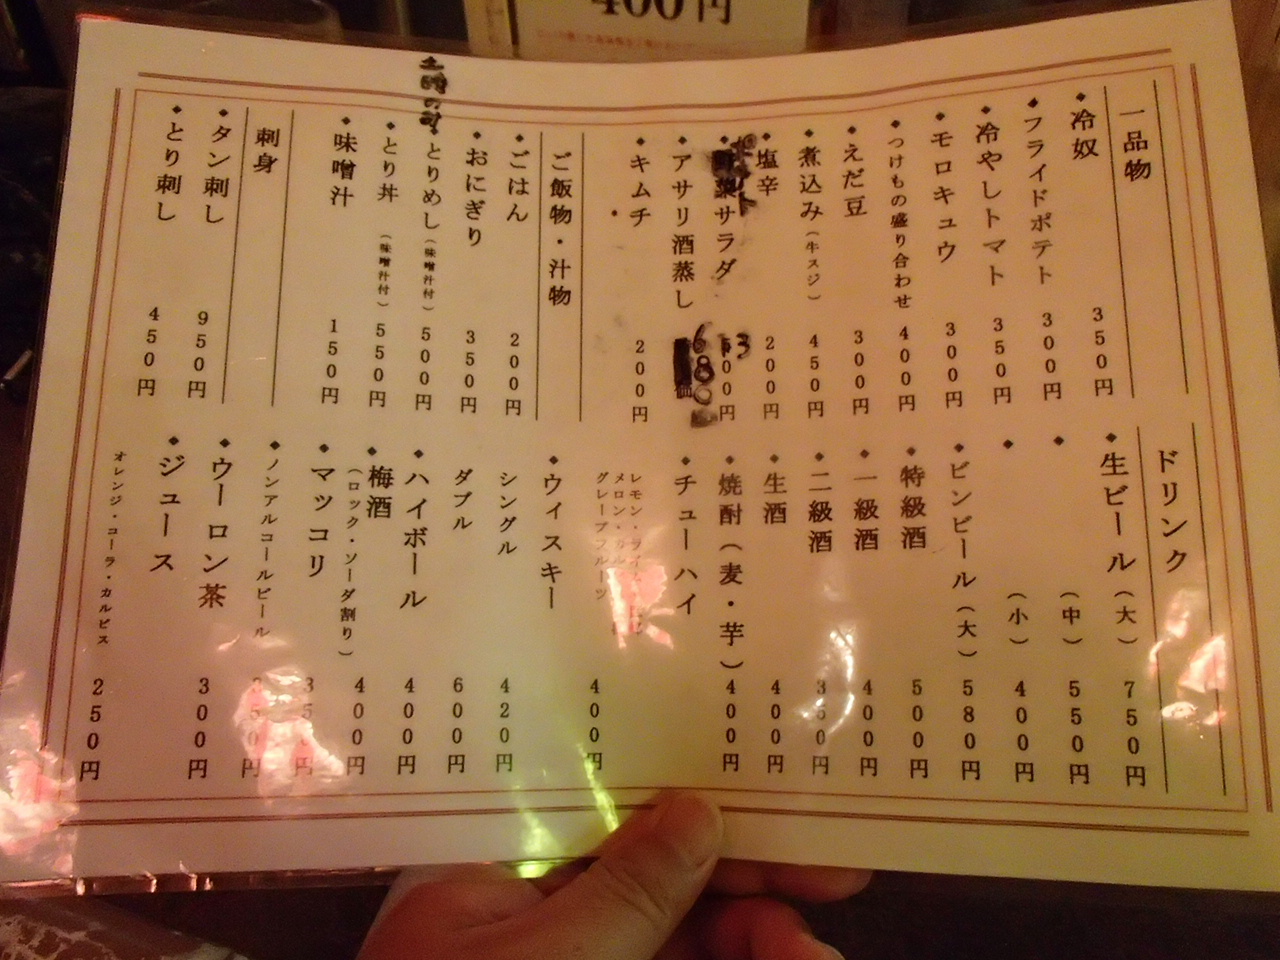 400円
一品物
◆冷奴 350円
◆フライドポテト 300円
◆冷やしトマト 350円
◆モロキュウ 300円
◆つけもの盛り合わせ 400円
◆えだ豆 300円
◆煮込み(牛スジ) 450円
◆塩辛 200円
サラダ
◆アサリ酒蒸し 680
◆キムチ 200円
ご飯物・汁物
◆ごはん 200円
◆おにぎり 350円
◆とりめし(味噌汁付) 500円
土曜のみ
◆とり丼(味噌汁付) 550円
◆味噌汁 150円
刺身
◆タン刺し 950円
◆とり刺し 450円
ドリンク
◆生ビール(大) 750円
◆(中) 550円
◆(小) 400円
◆ビンビール(大) 580円
◆特級酒 500円
◆一級酒 400円
◆二級酒 350円
◆生酒 400円
◆焼酎(麦・芋) 400円
◆チューハイ
レモン・ライム
メロン・
グレープフルーツ 400円
◆ウイスキー
シングル 420円
ダブル 600円
◆ハイボール 400円
◆梅酒
(ロック・ソーダ割り) 400円
◆マッコリ
◆ノンアルコールビール
◆ウーロン茶 300円
◆ジュース
オレンジ・コーラ・カルピス 250円